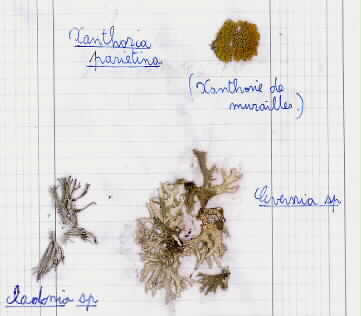 Xanthoria
parietina
(Xanthorie de
murailles.)
Evernia sp
Cladonia sp